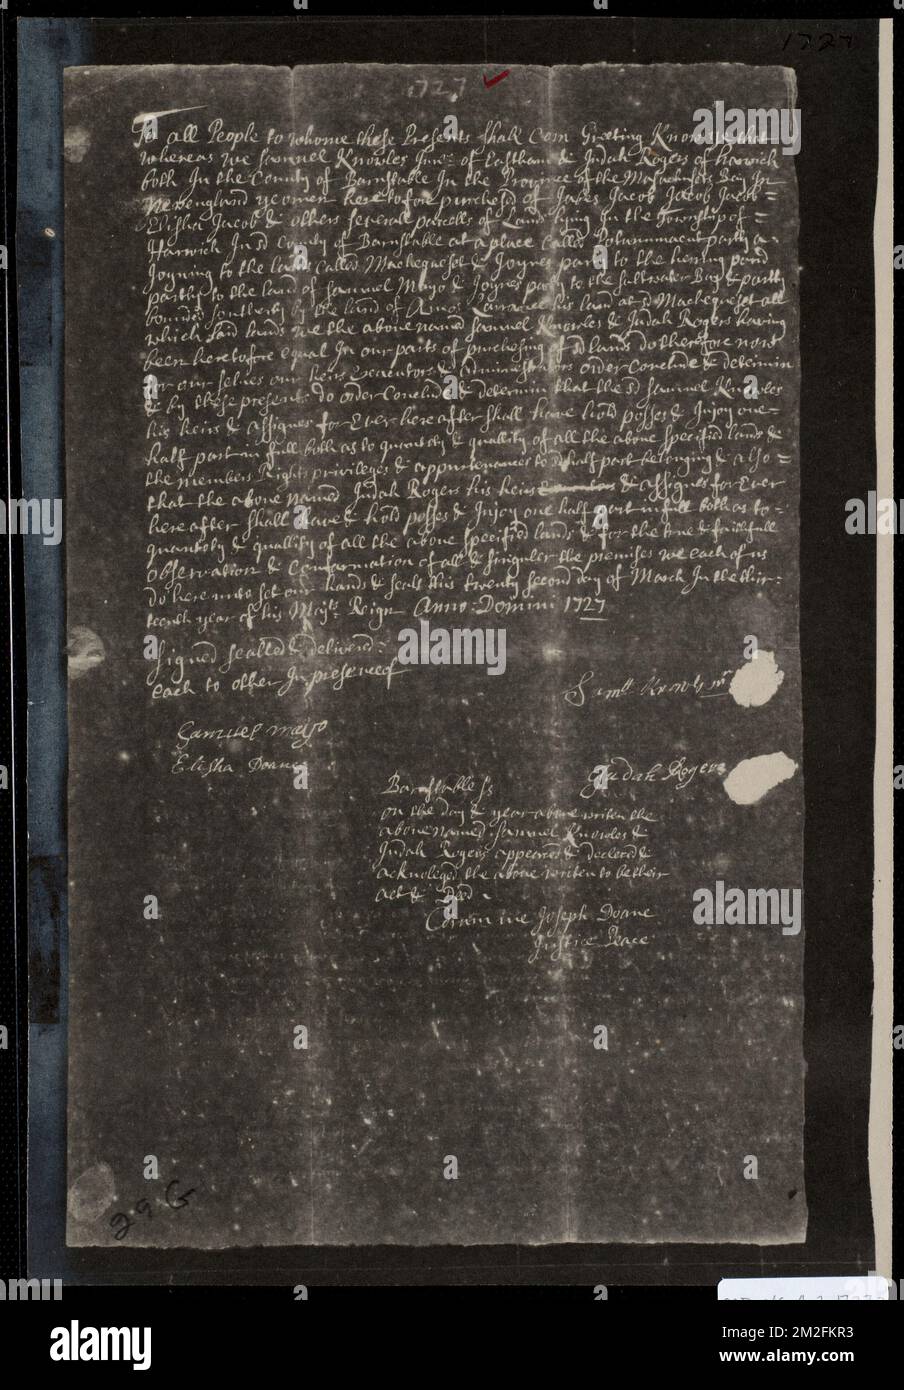 1727
1727
To all People to whome these Presents shall Com Greeting Know ye that
whereas we Samuel Knowles Junr. of Eastham & Judah Rogers of Harwich
both In the County of Barnstable In the Province of the Massachusets Bay In
Newengland yeomen heretofore purchased of James Jacob Jacob
Elisha Jacob & others severall parcells of Land lying In the Township of =
Harwich In sd County of Barnstable at a place called party a=
Joyning to the land called Machequeset & Joynes partly to the herring pond
partly to the land of Samuel Mayo & Joynes partly to the saltwater Bay & partly
bounded southerly by the land of Amos his land at sd Machequeset all
which said lands we the above named Samuel Knowles & Judah Rogers having
been heretofore equal In our parts of purchasing of sd lands do therefore now
for our selves our heirs Executors & Administrators order Conclude & determin
& by these presents do order Conclude & determin that the sd Samuel Knowles
his heirs & assignes for Ever hereafter shall have hold posses & Injoy one
half part in full both as to quantity & quallity of all the above specified lands &
the members Rights privileges & appurtenances to sd half part belonging & also =
that the above named Judah Rogers his heirs & assignes for Ever
here after shall have & hold posses & Injoy one half part in full both as to
quantoty & quallity of all the above specified lands & for the true & faithfull
observation & Confarmation of all & singuler the premises we each of us
do hereunto set our hands & seals this twenty second day of March In the thir=
teenth year of his Majts. Reign Anno: Domini 1727
Signed sealled & delivered
each to other In presence of
Samll Knowls
Samuel mayo
Elisha Doane
Judah Rogers
Barnstable Ss
on the day & year above writen the
above named Samuel Knowles &
Judah Rogers appeared & declered &
acknoleged the above writen to be their
act & Deed.
Coram me Joseph Doane
Justice Peace
29 G
alamy
alamy
Image ID: 2M2FKR3
www.alamy.com